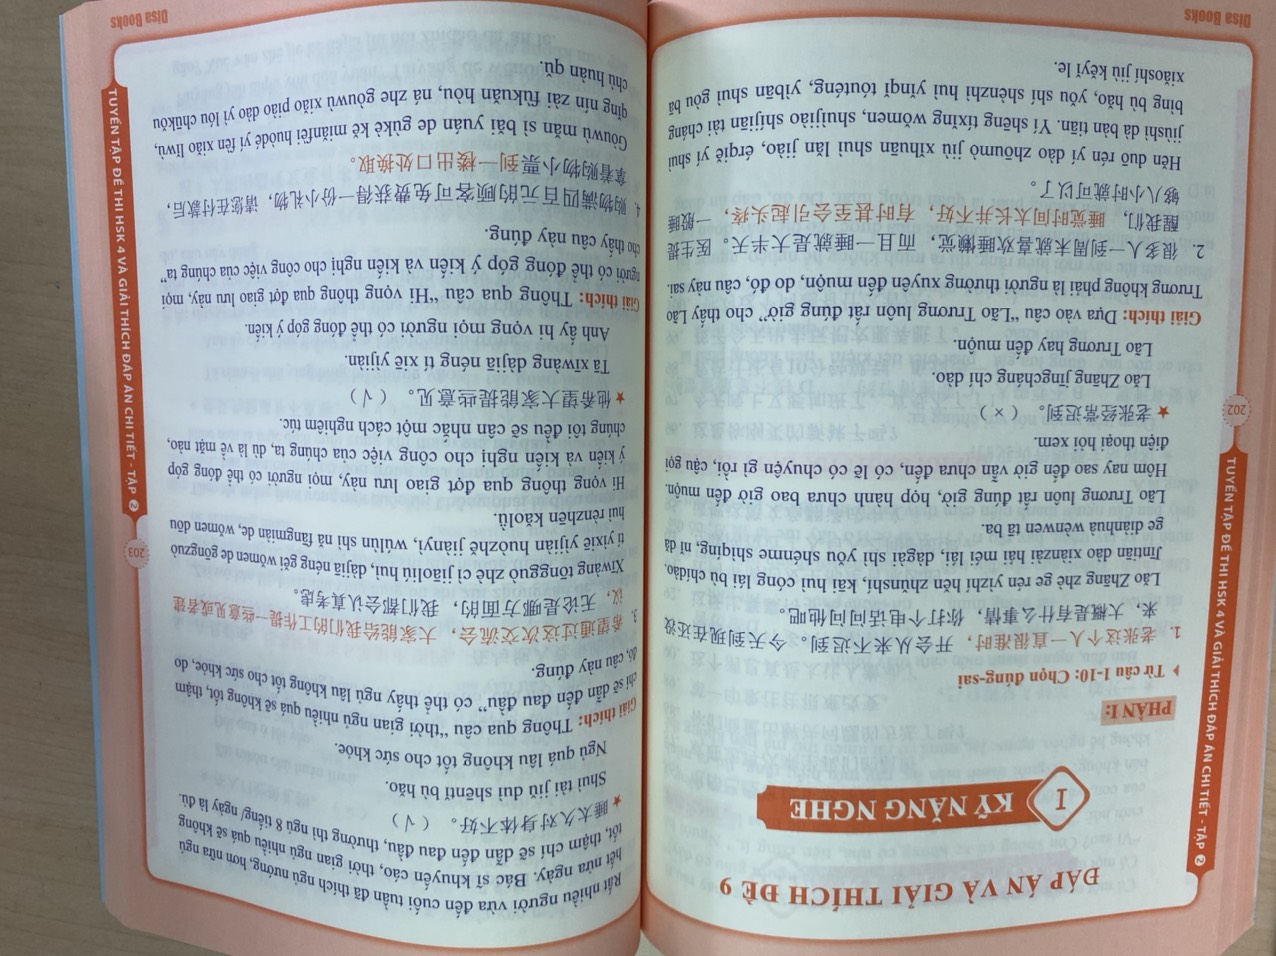 Disa Books
ĐÁP ÁN VÀ GIẢI THÍCH ĐỀ 9
I KỸ NĂNG NGHE
PHẦN I:
Từ câu 1-10: Chọn đúng-sai
1. 老张这个人一直很准时，开会从来不迟到。今天到现在还没
来，大概是有什么事情，你打个电话问问他吧。
Lǎo Zhāng zhè ge rén yìzhí hěn zhǔnshí, kāi huì cóng lái bù chídào.
Jīntiān dào xiànzài hái méi lái, dàgài shì yǒu shénme shìqing, nǐ dǎ
ge diànhuà wènwen tā ba.
Lão Trương luôn rất đúng giờ, họp hành chưa bao giờ đến muộn.
Hôm nay sao đến giờ vẫn chưa đến, có lẽ có chuyện gì rồi, cậu gọi
điện thoại hỏi xem.
★ 老张经常迟到。（ × ）
Lǎo Zhāng jīngcháng chí dào.
Lão Trương hay đến muộn.
Giải thích: Dựa vào câu "Lão Trương luôn rất đúng giờ" cho thấy Lão
Trương không phải là người thường xuyên đến muộn, do đó, câu này sai.
2. 很多人一到周末就喜欢睡懒觉，而且一睡就是大半天。医生提
醒我们，睡觉时间太长并不好，有时甚至会引起头疼，一般睡
够八小时就可以了。
Hěn duō rén yí dào zhōumò jiù xǐhuān shuì lǎn jiào, érqiě yí shuì
jiùshì dà bàn tiān. Yī shēng tíxǐng wǒmen, shuìjiào shíjiān tài cháng
bìng bù hǎo, yǒu shí shènzhì huì yǐnqǐ tóuténg, yìbān shuì gòu bā
xiǎoshí jiù kěyǐ le.
202
TUYỂN TẬP ĐỀ THI HSK 4 VÀ GIẢI THÍCH ĐÁP ÁN CHI TIẾT - TẬP 2
Disa Books
Rất nhiều người vừa đến cuối tuần đã thích ngủ nướng, hơn nữa ngủ
hết nửa ngày. Bác sĩ khuyến cáo, thời gian ngủ nhiều quá sẽ không
tốt, thậm chí sẽ dẫn đến đau đầu, thường thì ngủ 8 tiếng/ ngày là đủ.
★ 睡太久对身体不好。（ √ ）
Shuì tài jiǔ duì shēntǐ bù hǎo.
Ngủ quá lâu không tốt cho sức khỏe.
Giải thích: Thông qua câu "thời gian ngủ nhiều quá sẽ không tốt, thậm
chí sẽ dẫn đến đau đầu" có thể thấy ngủ lâu không tốt cho sức khỏe, do
đó, câu này đúng.
3. 希望通过这次交流会，大家能给我们的工作提一些意见或者建
议，无论是哪方面的，我们都会认真考虑。
Xīwàng tōngguò zhè cì jiāoliú huì, dàjiā néng gěi wǒmen de gōngzuò
tí yìxiē yìjiàn huòzhě jiànyì, wúlùn shì nǎ fāngmiàn de, wǒmen dōu
huì rènzhēn kǎolǜ.
Hi vọng thông qua đợt giao lưu này, mọi người có thể đóng góp
ý kiến và kiến nghị cho công việc của chúng ta, dù là về mặt nào,
chúng tôi đều sẽ cân nhắc một cách nghiêm túc.
★ 他希望大家能提些意见。（ √ ）
Tā xīwàng dàjiā néng tí xiē yìjiàn.
Anh ấy hi vọng mọi người có thể đóng góp ý kiến.
Giải thích: Thông qua câu "Hi vọng thông qua đợt giao lưu này, mọi
người có thể đóng góp ý kiến và kiến nghị cho công việc của chúng ta"
cho thấy câu này đúng.
4. 购物满四百元的顾客可免费获得一份小礼物，请您在付款后，
拿着购物小票到一楼出口处换取。
Gòuwù mǎn sì bǎi yuán de gùkè kě miǎnfèi huòdé yí fèn xiǎo lǐwù,
qǐng nín zài fùkuǎn hòu, ná zhe gòuwù xiǎo piào dào yī lóu chūkǒu
chù huàn qǔ.
203
TUYỂN TẬP ĐỀ THI HSK 4 VÀ GIẢI THÍCH ĐÁP ÁN CHI TIẾT - TẬP 2